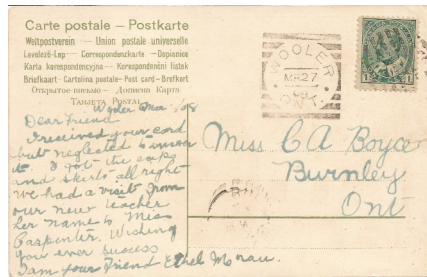 Carte postale – Postkarte
Weltpostverein — Union postale universelle
Levelező-Lap — Correspondenzkarte — Dopisnice
Karta korespondencyjna — Korespondenčni listek
Briefkaart - Cartolina postale - Post card - Brefkort
Открытое письмо — Дописна Карта
WOOLER
MR 27
ONT
Wooler Mar
Dear Friend
I received your card
but neglected to answer
it. I got the caps
and skirts all right
we had a visit from
our new teacher
her name is Miss
Carpenter. Wishing
you ever success
I am your Friend Ethel Morau.
Miss C A Boyce
Burnley
Ont